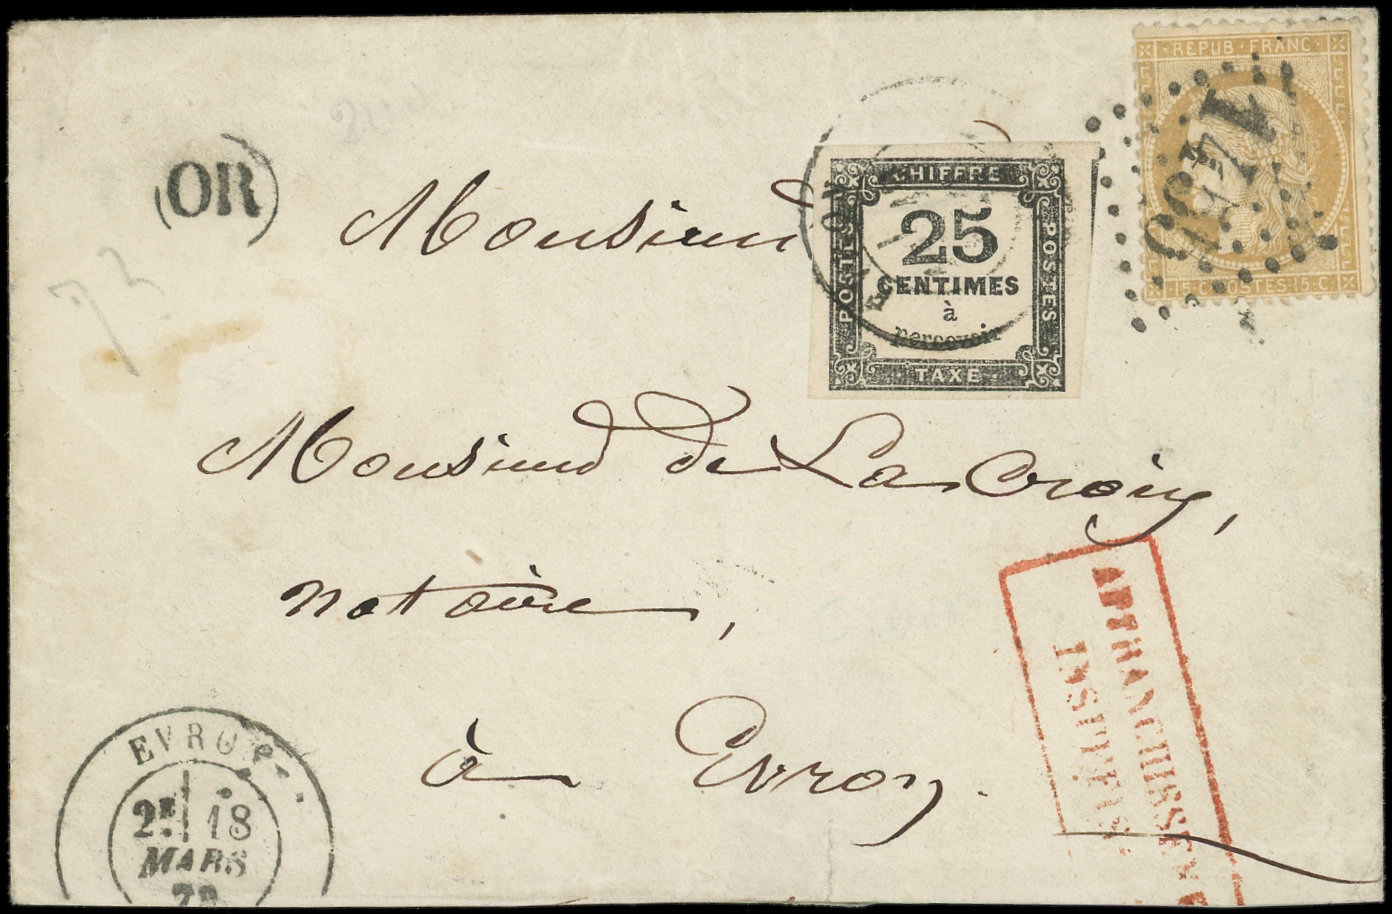 REPUB · FRANC
1455
15 · C · POSTES · 15 · C
OR
Monsieur
CHIFFRE
POSTES
25
CENTIMES
à
percevoir
POSTES
TAXE
73
Monsieur de La Croix,
notaire,
à Evron.
AFFRANCHISSEMENT
INSUFFISANT
EVRON
2E 18
MARS
72